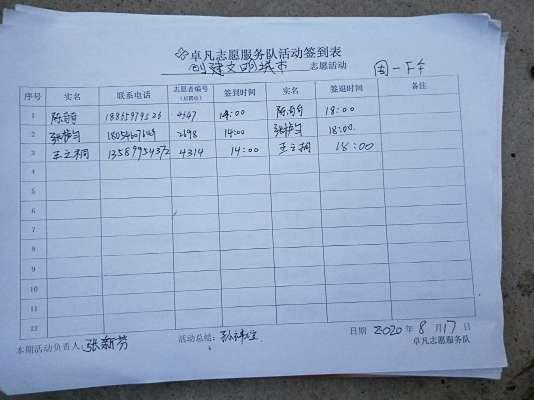 卓凡志愿服务队活动签到表
创建文明城市 志愿活动 周一下午
序号 实名 联系电话 志愿者编号(后四位) 签到时间 实名 签退时间 备注
1 陈 4547 14:00 陈 18:00
2 张 2698 14:00 张 18:00
3 王立桐 4314 14:00 王立桐 18:00
4
5
6
7
8
9
10
11
12
本期活动负责人:张新芳 活动总结: 日期 2020年8月17日
卓凡志愿服务队